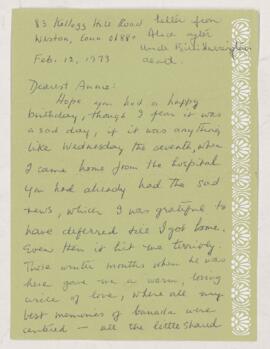 83 Kellogg Hill Road letter from
Weston, Conn 0688 Alice after
Uncle
Feb. 12, 1973 death.
Dearest Annie:
Hope you had a happy
birthday, though I fear it was
a sad day, if it was anything
like Wednesday the seventh, when
I came home from the hospital.
You had already had the sad
news, which I was grateful to
have deferred till I got home.
Even then it hit me terribly.
Those winter months when he was
here gave me a warm, loving
circle of love, where all my
best memories of Canada were
centred — all the little shared